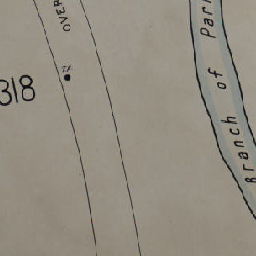 OVER
318
Branch of Par